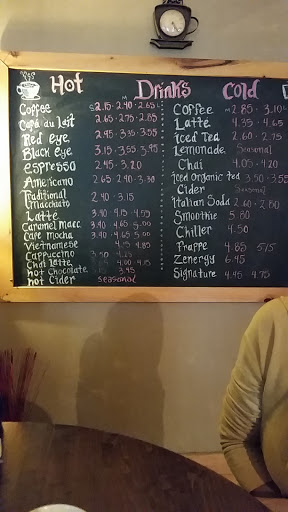 Hot Drinks Cold D
Coffee S 2.15 · M 2.40 · 2.65 L
Café du Lait 2.65 · 2.75 · 2.85
Red eye 2.45 · 3.35 · 3.55
Black eye 3.15 · 3.55 · 3.95
espresso 2.45 · 3.20
Americano 2.65 · 2.90 · 3.30
Traditional
Macchiato 2.40 · 3.15
Latte 3.40 4.15 · 4.55
Caramel Macc. 3.40 · 4.65 5.00
Cafe mocha 3.40 · 4.65 5.00
Vietnamese 4.35 4.85
Cappuccino 3.50 4.25
Chai Latte 4.00 · 4.15
Hot Chocolate 3.45
Hot Cider seasonal
Coffee M 2.85 · 3.10 L
Latte 4.35 · 4.65
Iced Tea 2.60 · 2.75
Lemonade Seasonal
Chai 4.05 · 4.20
Iced Organic tea 3.50 · 3.55
Cider Seasonal
Italian Soda 2.60 · 2.80
Smoothie 5.80
Chiller 4.50
Frappe 4.85 5.15
Zenergy 6.45
Signature 4.45 4.75